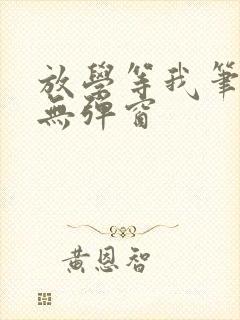 放學等我筆
無彈窗
黃恩智